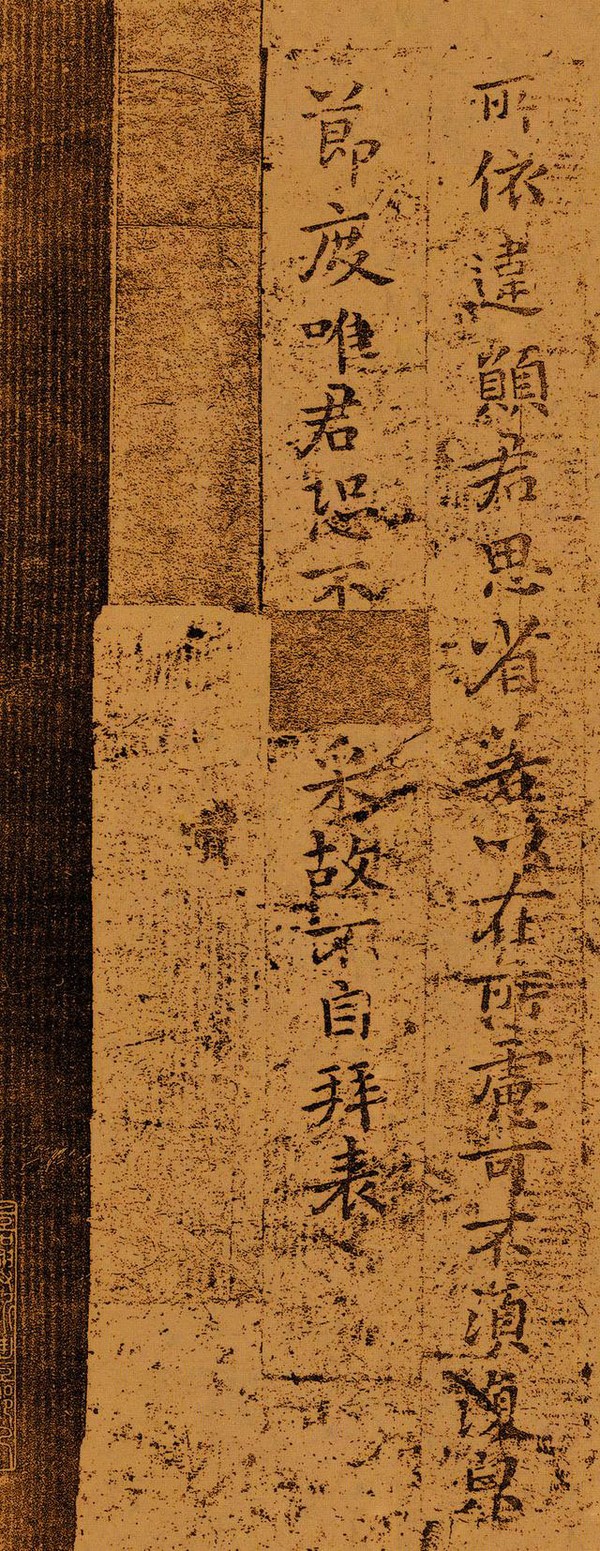 所依違願君思省若以在所慮可不須復
節度唯君恐不采故不自拜表